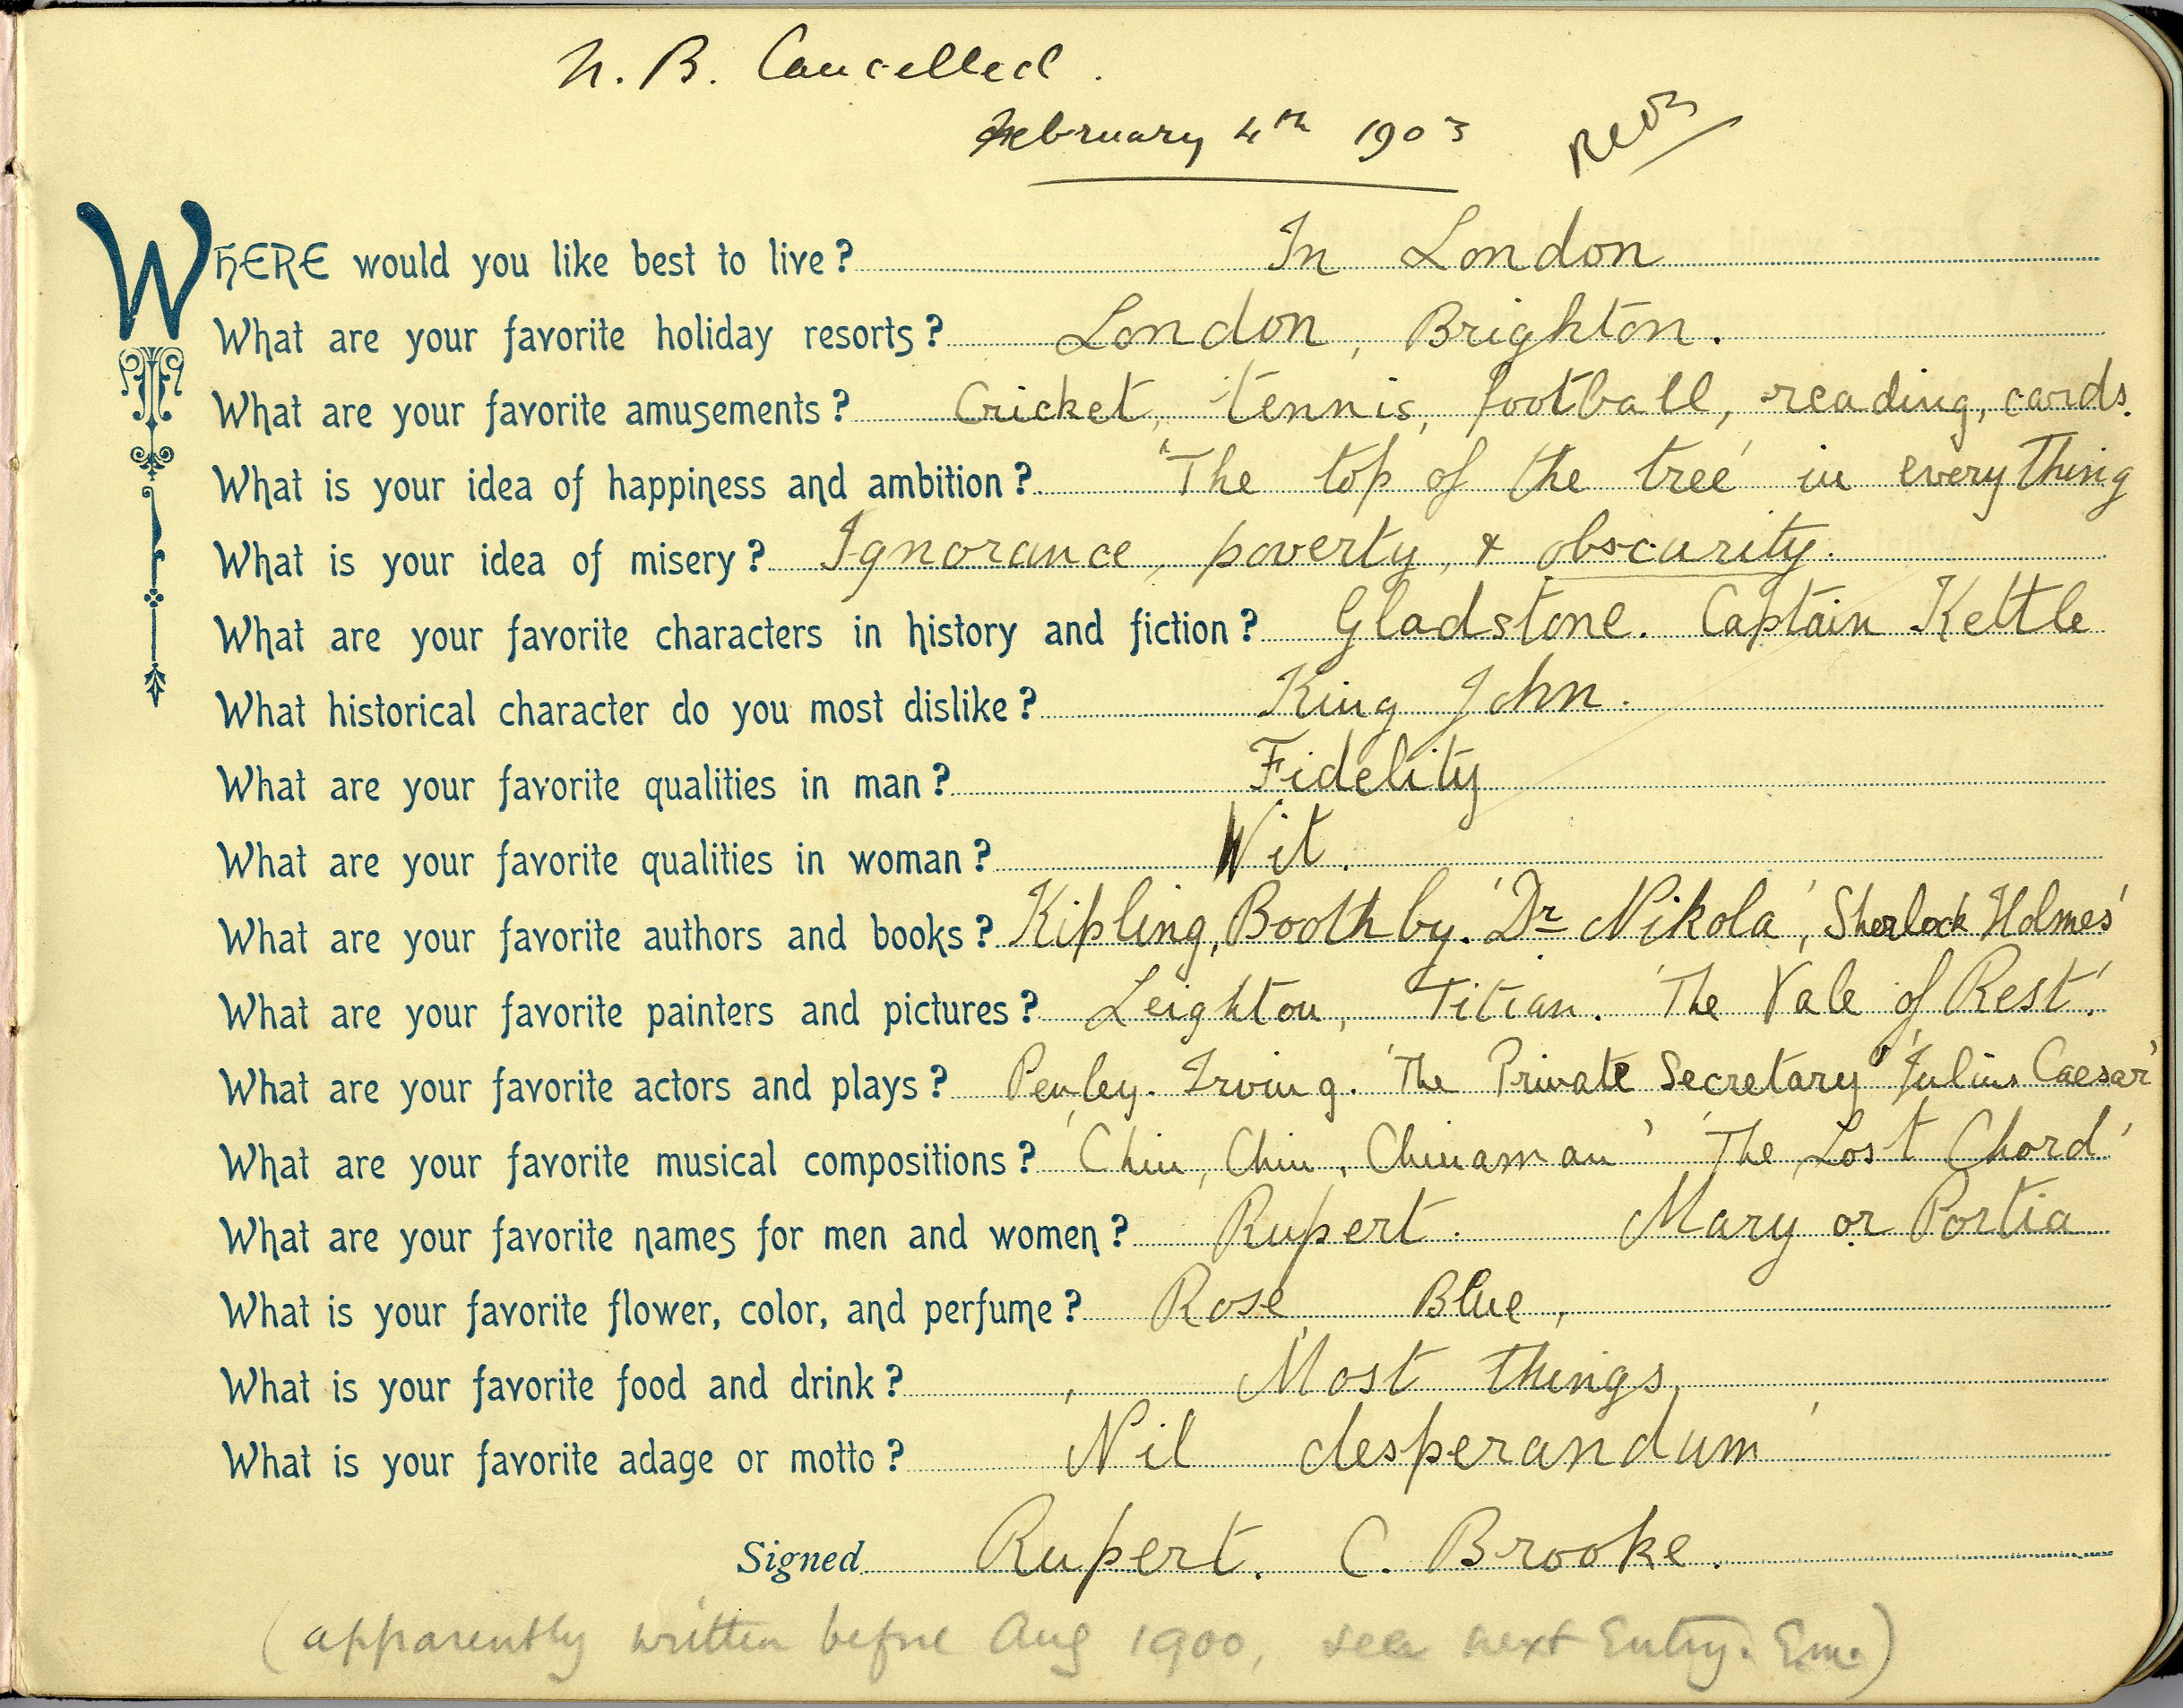 N. B. Cancelled.
February 4th 1903
WHERE would you like best to live? In London
What are your favorite holiday resorts? London, Brighton.
What are your favorite amusements? Cricket, tennis, football, reading, cards.
What is your idea of happiness and ambition? 'The top of the tree' in everything
What is your idea of misery? Ignorance, poverty, & obscurity.
What are your favorite characters in history and fiction? Gladstone. Captain Kettle
What historical character do you most dislike? King John.
What are your favorite qualities in man? Fidelity
What are your favorite qualities in woman? Wit.
What are your favorite authors and books? Kipling, Boothby. 'Dr Nikola', 'Sherlock Holmes'
What are your favorite painters and pictures? Leighton, Titian. 'The Vale of Rest'.
What are your favorite actors and plays? Penley. Irving. 'The Private Secretary' 'Julius Caesar'
What are your favorite musical compositions? 'Chin, Chin, Chinaman' 'The Lost Chord'
What are your favorite names for men and women? Rupert. Mary or Portia
What is your favorite flower, color, and perfume? Rose, Blue,
What is your favorite food and drink? Most things,
What is your favorite adage or motto? Nil desperandum
Signed Rupert. C. Brooke.
(apparently written before Aug 1900, see next Entry. Em.)